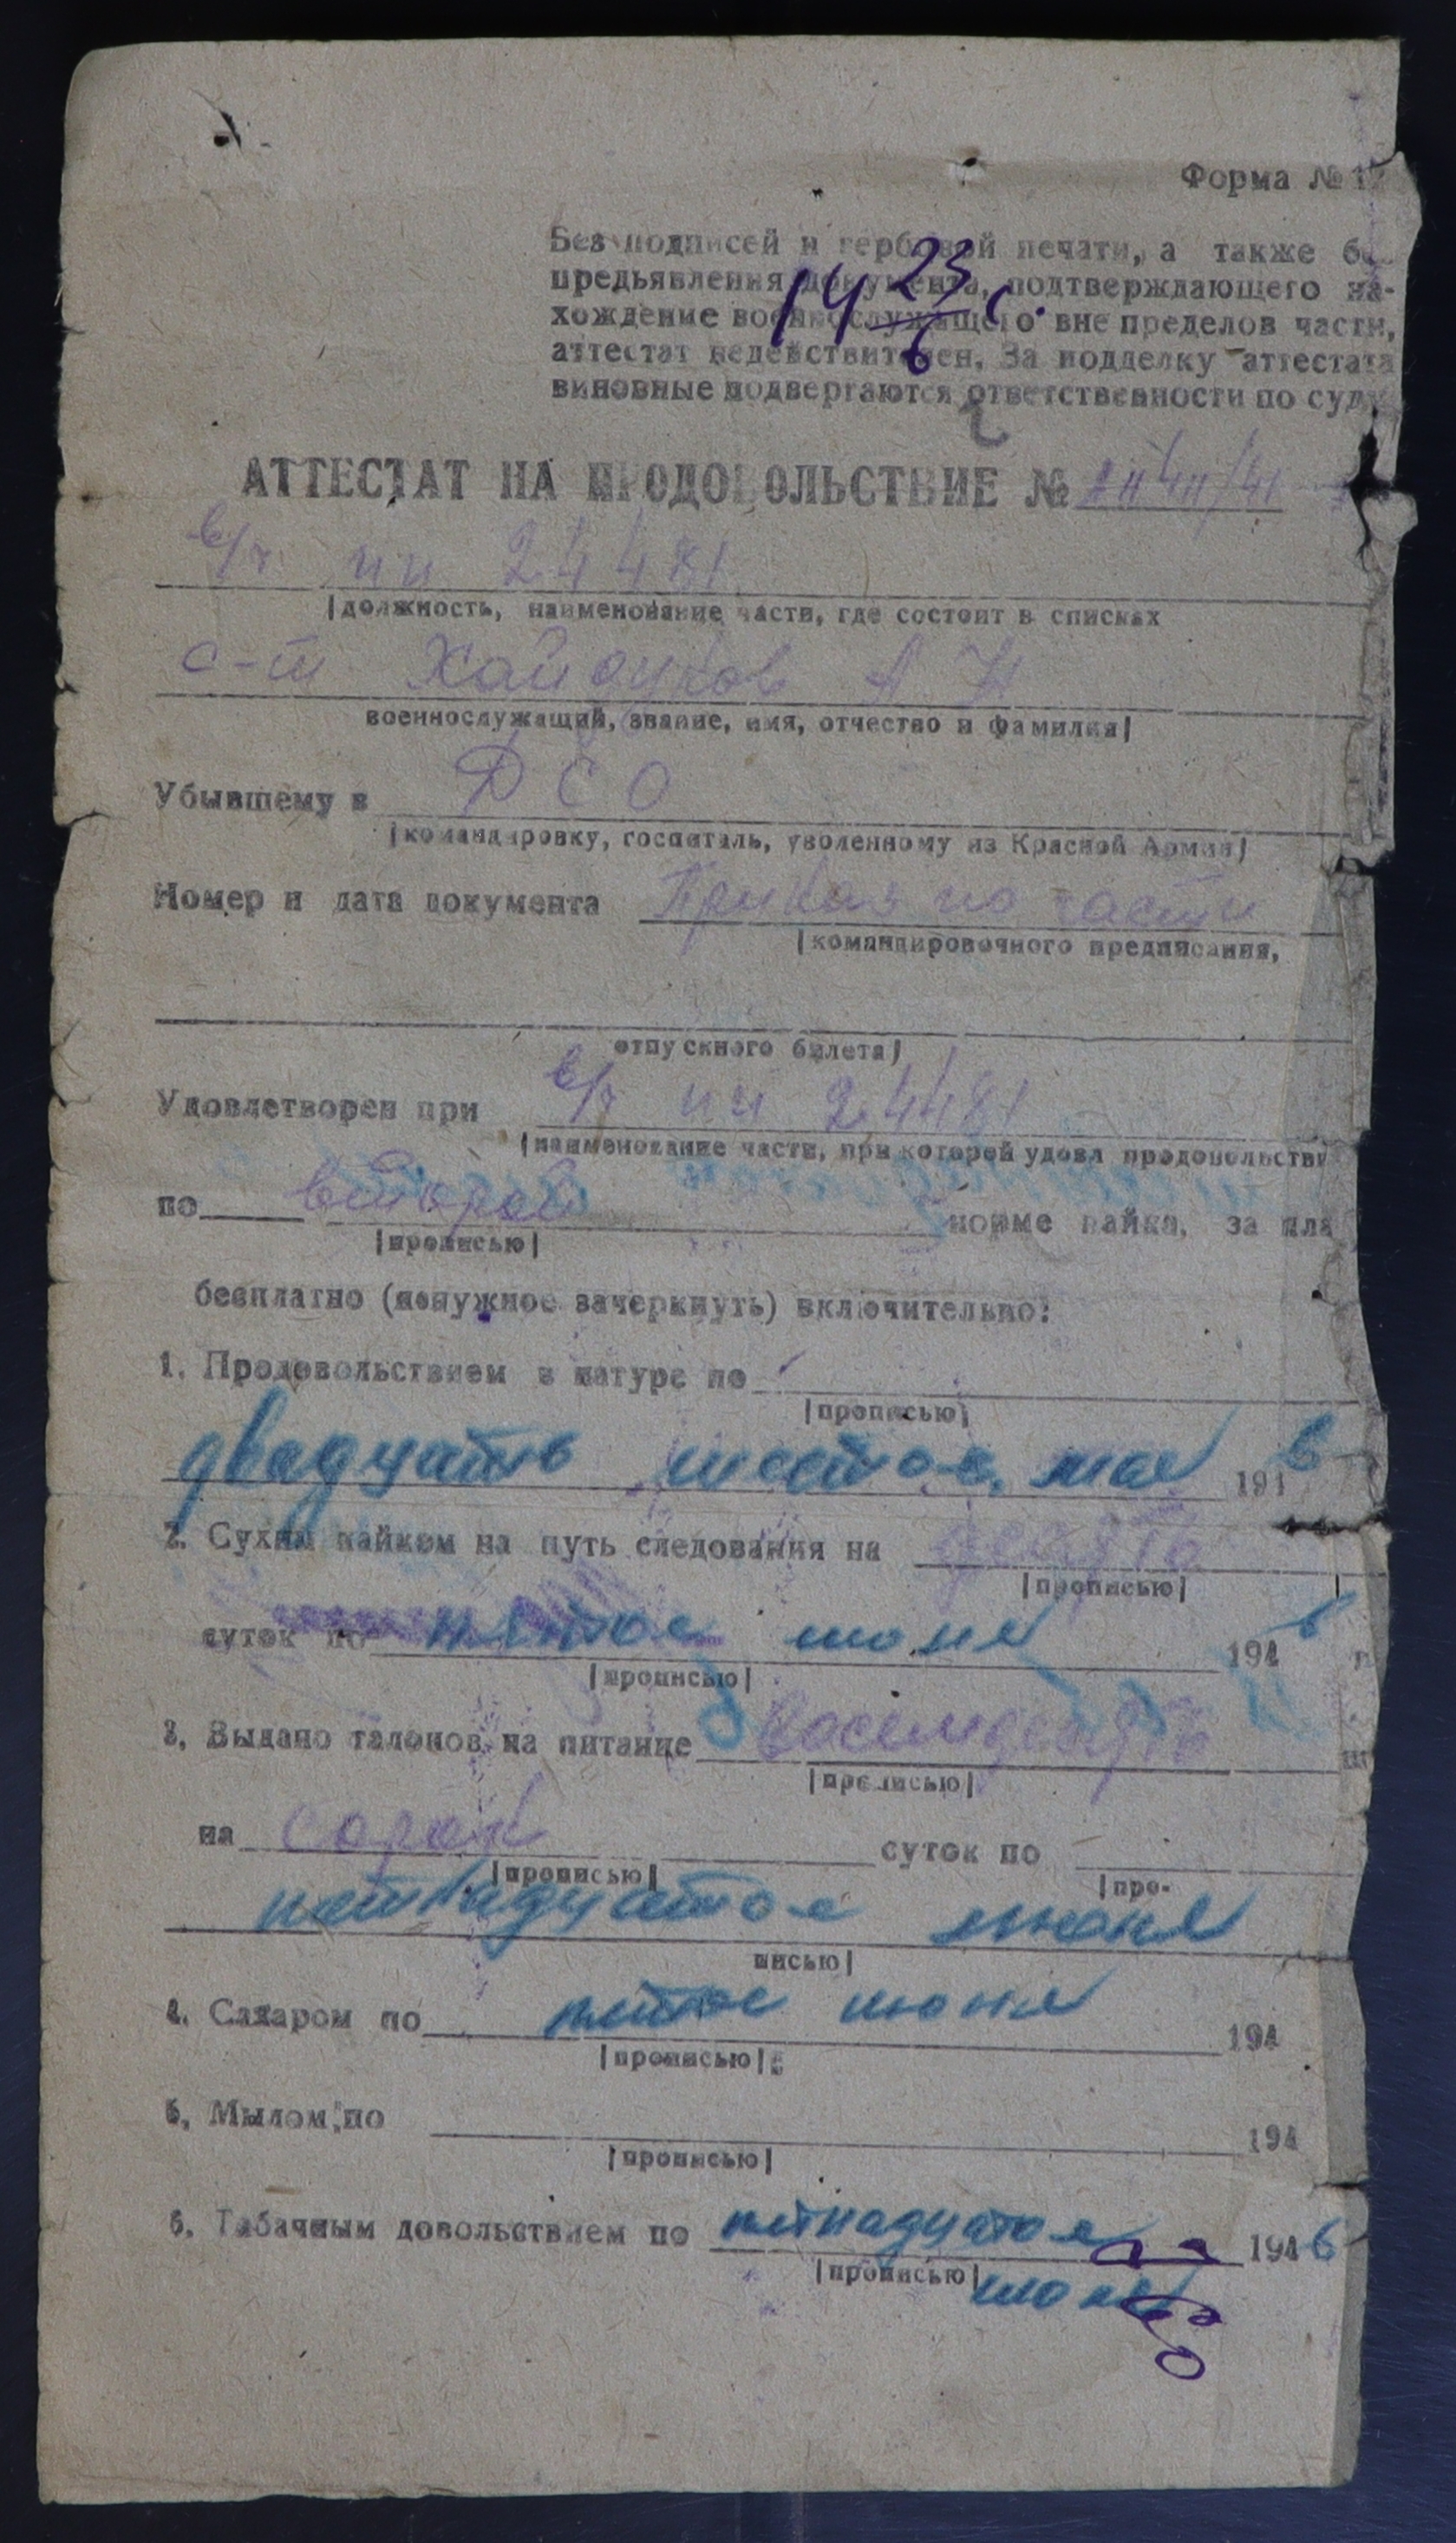 Форма № 1
Без подписей и гербовой печати, а также б
предъявления документа, подтверждающего на-
14 23/6 с.
хождение военнослужащего вне пределов части,
аттестат недействителен. За подделку аттестата
виновные подвергаются ответственности по суду
АТТЕСТАТ НА ПРОДОВОЛЬСТВИЕ №
в/ч пп 24481
|должность, наименование части, где состоит в списках
с-т Хайдуков А Н
военнослужащий, звание, имя, отчество и фамилия|
Убывшему в ДСО
|командировку, госпиталь, уволенному из Красной Армии|
Номер и дата документа Приказ по части
|командировочного предписания,
отпускного билета|
Удовлетворен при в/ч пп 24481
|наименование части, при которой удовл продовольстви
по второй норме пайка, за пла
|прописью|
бесплатно (ненужное зачеркнуть) включительно:
1. Продовольствием в натуре по
|прописью|
двадцать шестое мая 194 6
2. Сухим пайком на путь следования на десять
|прописью|
суток по пятое июня 194 6 г
|прописью|
3. Выдано талонов на питание восемдесять
|прописью|
на сорок суток по
|прописью| |про-
пятнадцатое июня
писью|
4. Сахаром по пятое июня 194
|прописью|
5. Мылом по 194
|прописью|
6. Табачным довольствием по пятнадцатое 194 6
|прописью| июня